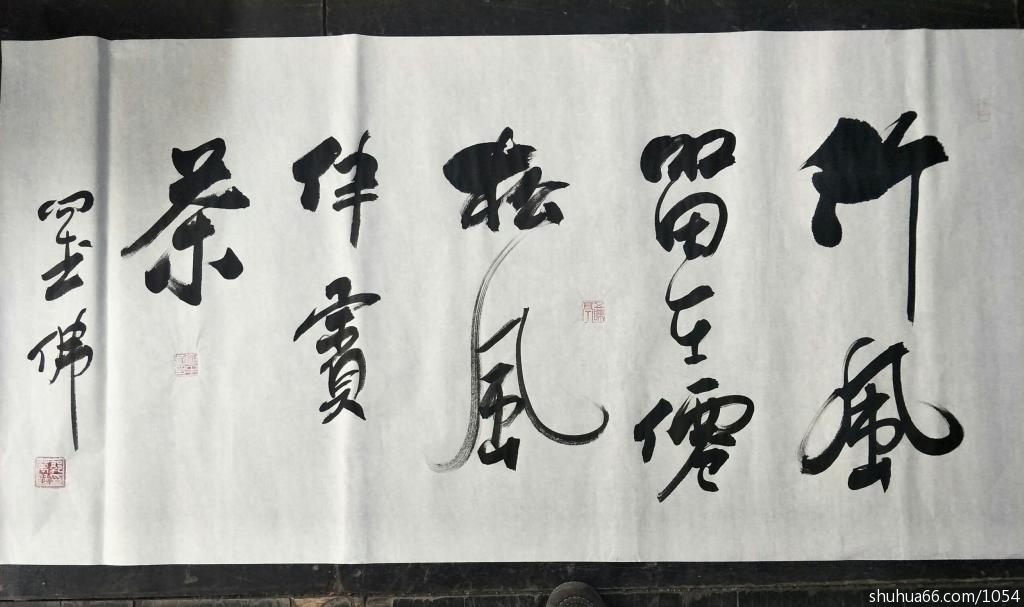 竹風
留在僊
松風
伴賓
茶
墨佛
shuhua66.com/1054